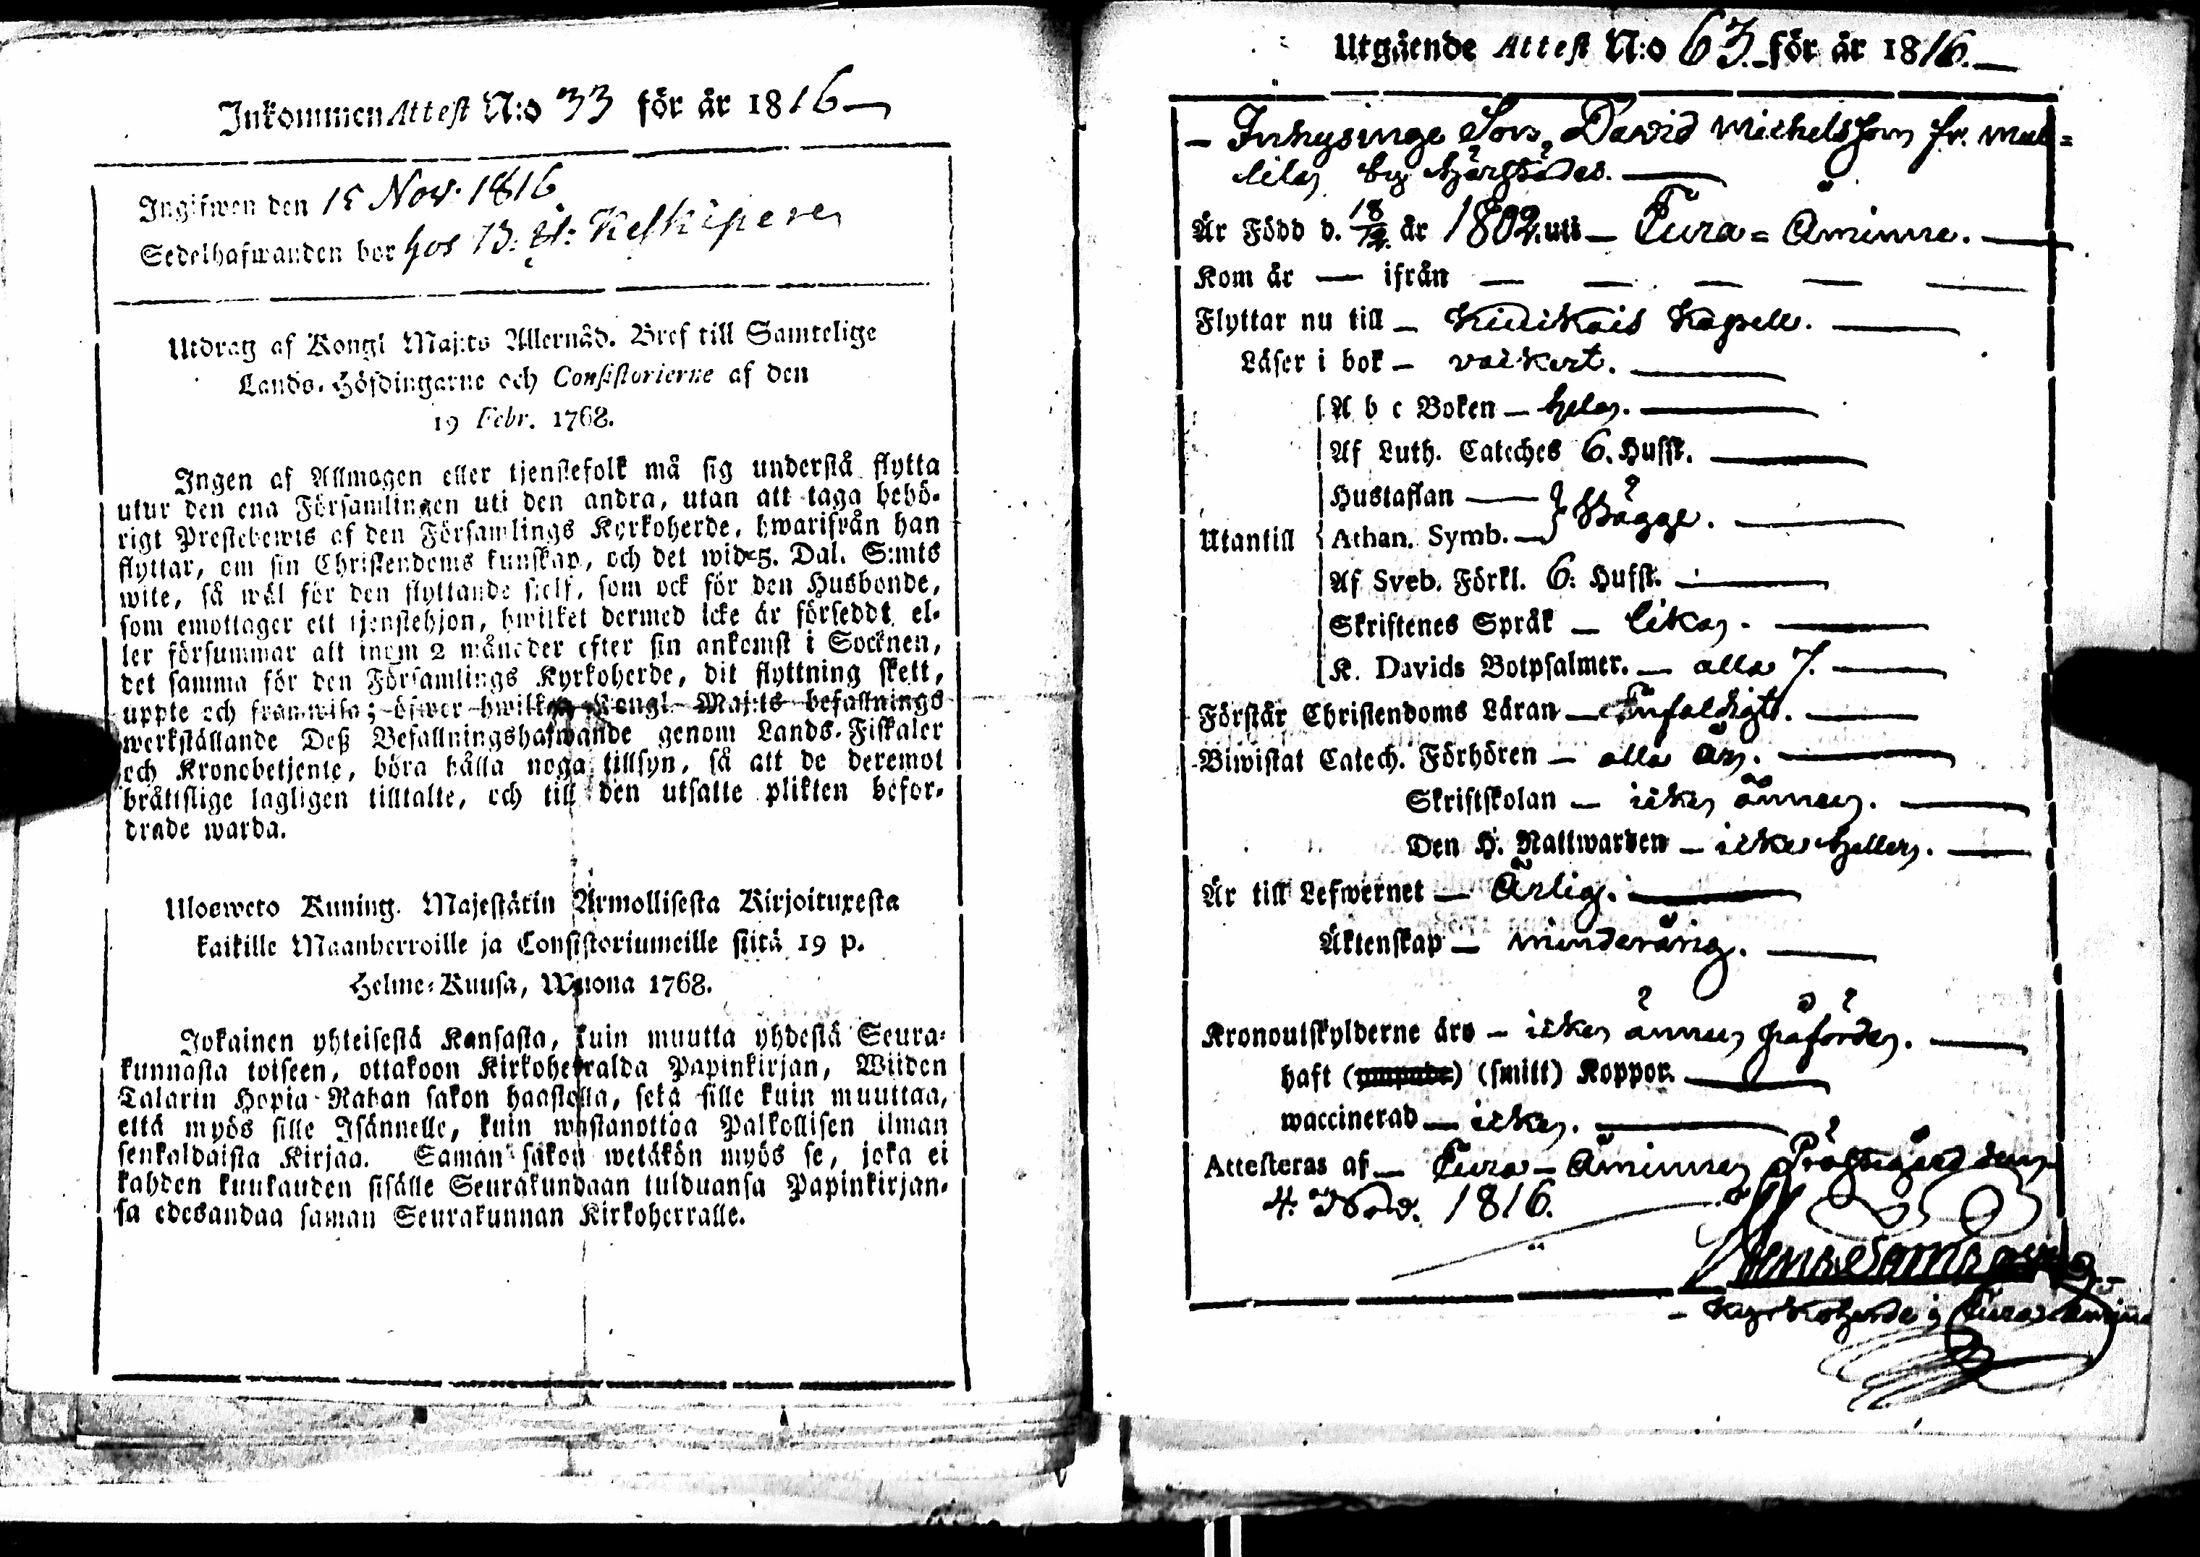 Inkommen Attest N:o 33 för år 1816
Ingifwen den 15 Nov. 1816
Sedelhafwanden bor hos
Utdrag af Kongl Maj:ts Allernåd. Bref till Samtelige
Lands-Höfdingarne och Consistorierne af den
19 Febr. 1768.
Ingen af Allmogen eller tjenstefolk må sig understå flytta
utur den ena Församlingen uti den andra, utan att taga behö-
rigt Prestebewis af den Församlings Kyrkoherde, hwarifrån han
flyttar, om sin Christendoms kunskap, och det wid 5. Dal. S:mts
wite, så wäl för den flyttande sielf, som ock för den Husbonde,
som emottager ett tjenstehjon, hwilket dermed icke är förseddt, el-
ler försummar att inom 2 månader efter sin ankomst i Socknen,
det samma för den Församlings Kyrkoherde, dit flyttning skett,
uppte och framwisa; öfwer hwilken Kongl Maj:ts befallnings
werkställande Deß Befallningshafwande genom Lands-Fiskaler
och Kronobetjente, böra hålla noga tillsyn, så att de deremot
bråttslige lagligen tilltalte, och till den utsatte plikten befor-
drade warda.
Ulosweto Kuning. Majestätin Armollisesta Kirjoituxesta
kaikille Maanherroille ja Consistoriumeille siitä 19 p.
Helme-Kuusa, Wuona 1768.
Jokainen yhteisestä Kansasta, kuin muutta yhdestä Seura-
kunnasta toiseen, ottakoon Kirkoherralda Papinkirjan, Wiiden
Talarin Hopia Rahan sakon haastolla, sekä sille kuin muuttaa,
että myös sille Isännelle, kuin wastanottaa Palkollisen ilman
senkaldaista Kirjaa. Saman sakon wetäkön myös se, joka ei
kahden kuukauden sisälle Seurakundaan tulduansa Papinkirjan-
sa edesandaa saman Seurakunnan Kirkoherralle.
Utgående Attest N:o 63. för år 1816.
Inhysinge Son, David Michelsson fr.
by härstädes.
Är Född d. 18/12. år 1802. uti Eura-Åminne.
Kom år — ifrån — — — — —
Flyttar nu till Kiukais Kapell.
Läser i bok vackert.
A b c Boken hela.
Af Luth. Cateches 6. Hufst.
Hustaflan
Bägge.
Utantill
Athan. Symb.
Af Sveb. Förkl. 6: Hufst.
Skriftenes Språk lika.
K. Davids Botpsalmer. alla 7.
Förstår Christendoms Läran Enfaldigt.
Biwistat Catech. Förhören alla år.
Skriftskolan icke ännu.
Den H. Nattwarden icke heller.
Är till Lefwernet Ärlig.
Äktenskap minderårig.
Kronoutskylderne äro icke ännu påförde.
haft (ympade) (smitt) Koppor.
waccinerad icke.
Attesteras af Eura-Åminne Prästgård den
4. Nov. 1816.
Kyrkoherde i Eura Åminne